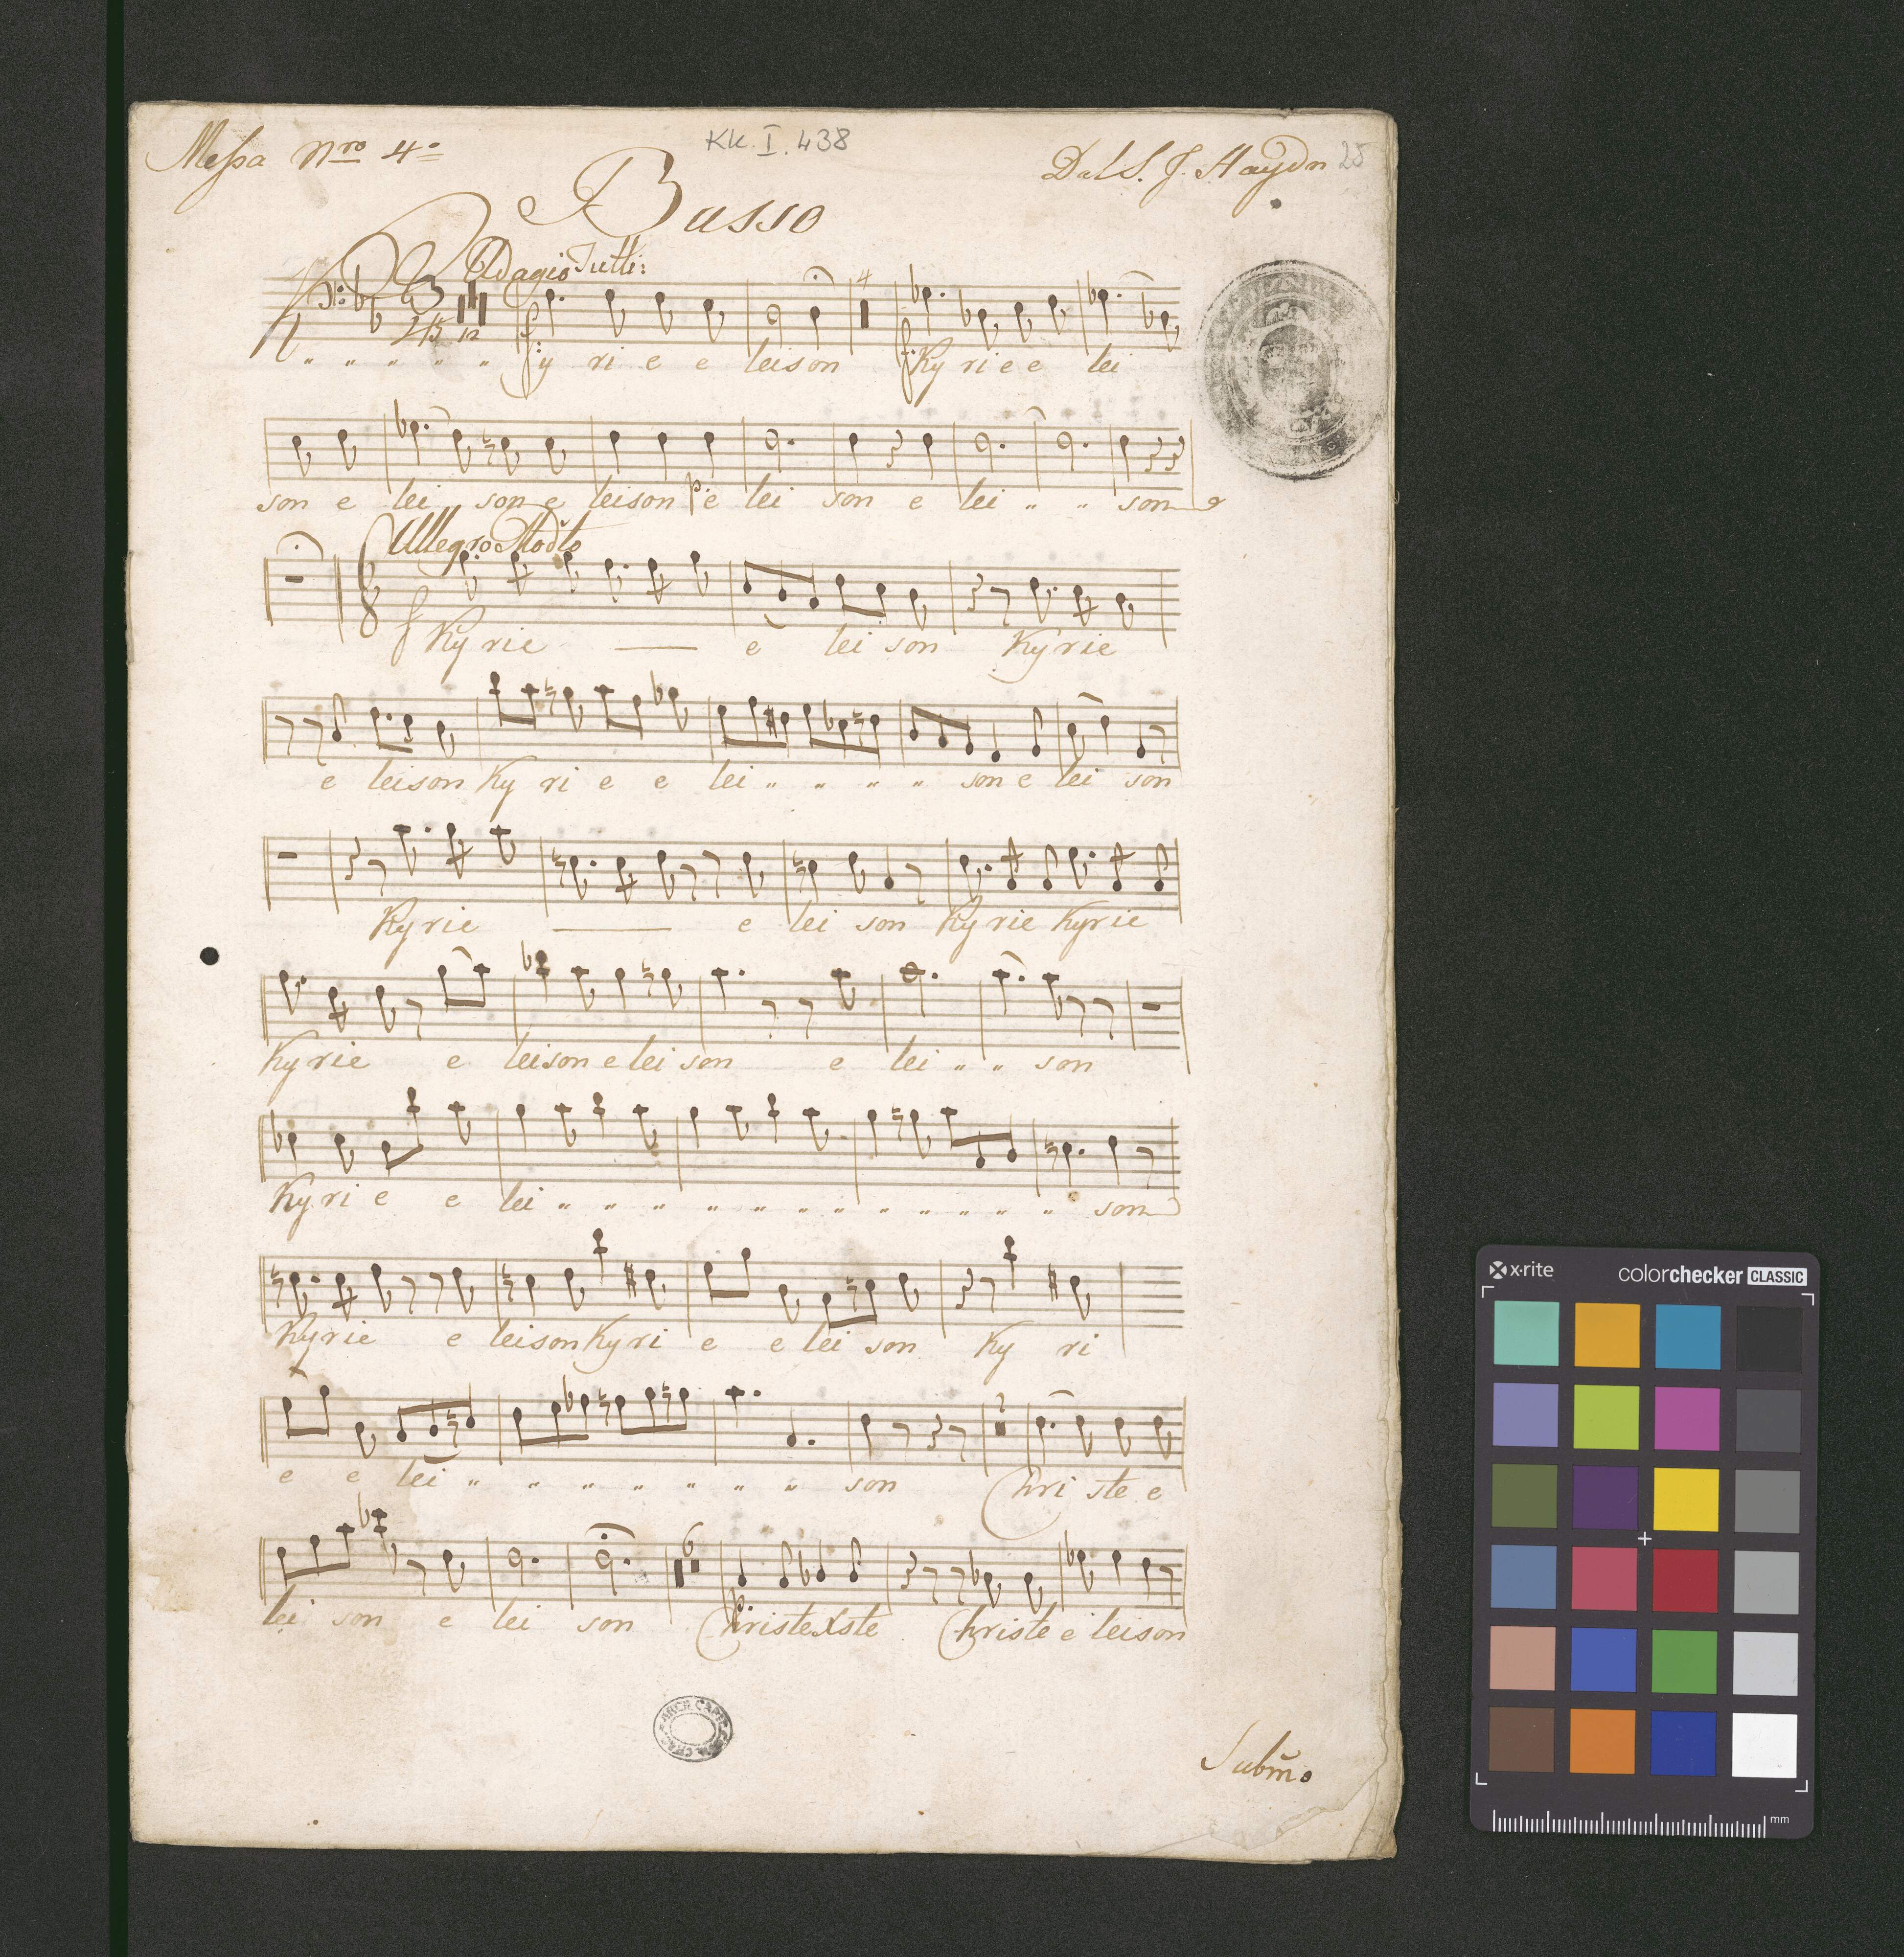 Messa Nro 4o
KK. I. 438
Dal S. J. Haydn 25
Basso
Adagio Tutti:
12 4
Kyrie eleison Kyrie e lei
son e lei son e leison p e lei son e lei " " son
Allegro Modto
6 8 f
Kyrie e lei son Kyrie
e leison Kyri e e lei " " " " son e lei son
Kyrie e lei son Kyrie Kyrie
Kyrie e leison e lei son e lei " " son
Kyri e e lei " " " " " " " " " " " son
Kyrie e leison Kyri e e lei son Ky ri
2
e e lei " " " " " " " son Christe e
6
lei son e lei son Christe Xste Christe e leison
Submo
x-rite
colorchecker CLASSIC
mm